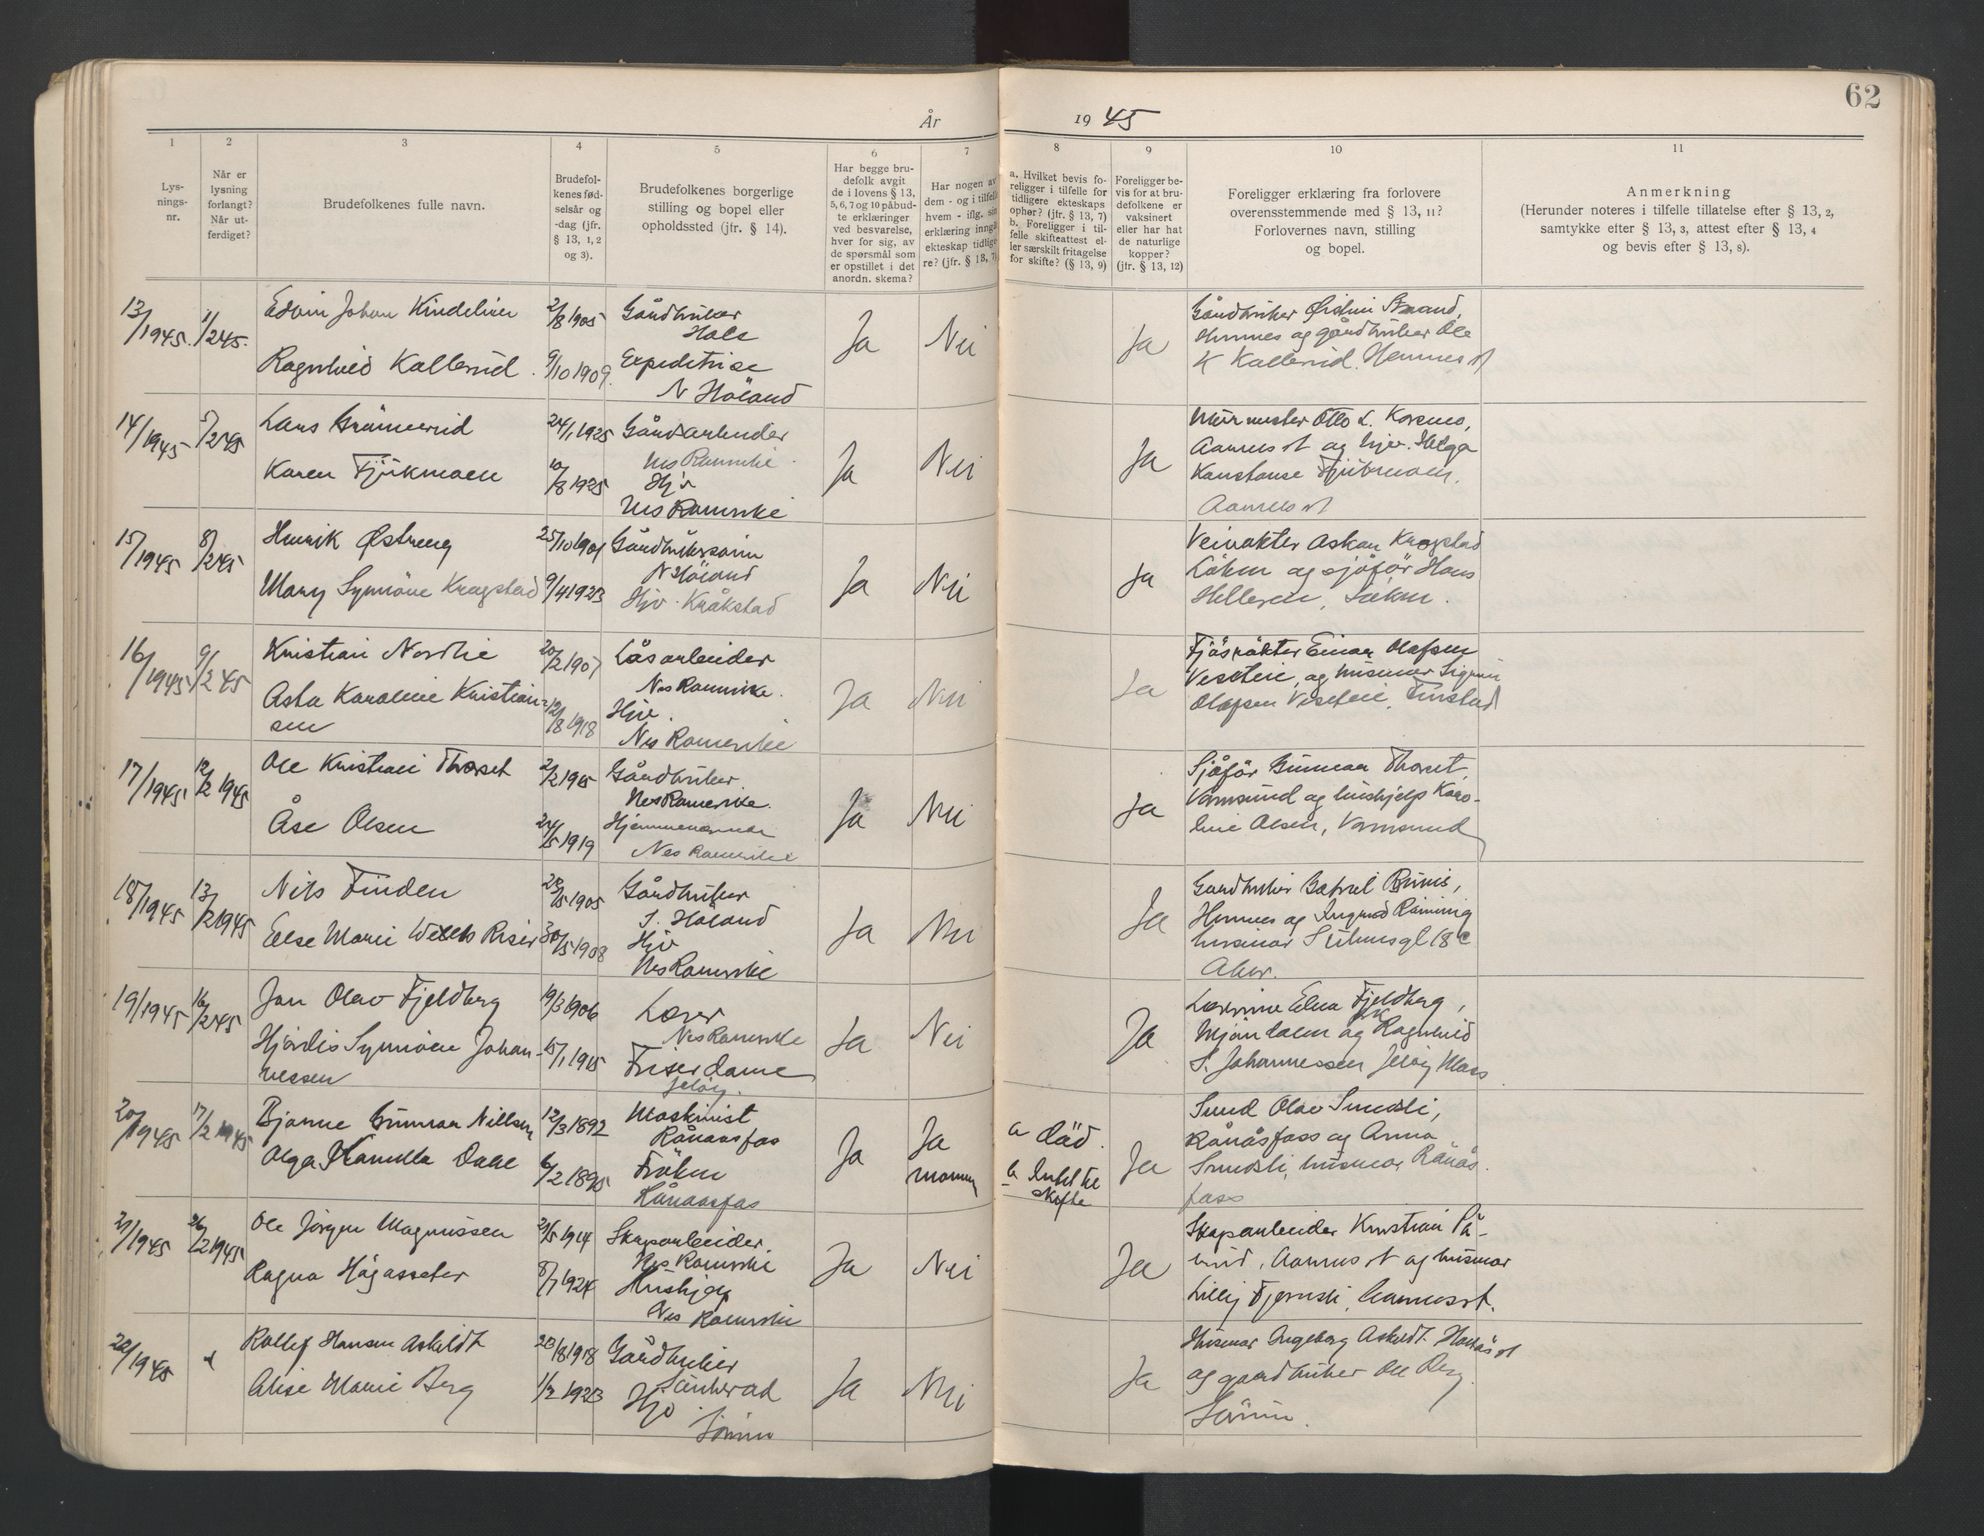 62
År 1945
1
2
3
4
5
6
7
8
9
10
11
Lys-
nings-
nr.
Når er
lysning
forlangt?
Når ut-
ferdiget?
Brudefolkenes fulle navn.
Brudefol-
kenes fød-
selsår og
-dag (jfr.
§ 13, 1, 2
og 3).
Brudefolkenes borgerlige
stilling og bopel eller
opholdssted (jfr. § 14).
Har begge bru-
defolk avgit
de i lovens § 13,
5, 6, 7 og 10 påbud-
te erklæringer
ved besvarelse,
hver for sig, av
de spørsmål som
er opstillet i det
anordn. skema?
Har nogen av
dem - og i tilfelle
hvem - iflg. sin
erklæring inngå
ekteskap tidlige
re? (jfr. § 13, 7)
a. Hvilket bevis fo-
religger i tilfelle for
tidligere ekteskaps
ophør? (jfr. § 13, 7)
b. Foreligger i til-
felle skifteattest el-
ler særskilt fritagelse
for skifte? (§ 13, 9)
Foreligger be-
vis for at bru-
defolkene er
vaksinert
eller har hat
de naturlige
kopper?
(jfr. § 13, 12)
Foreligger erklæring fra forlovere
overensstemmende med § 13, 11?
Forlovernes navn, stilling
og bopel.
Anmerkning
(Herunder noteres i tilfelle tillatelse efter § 13, 2,
samtykke efter § 13, 3, attest efter § 13, 4
og bevis efter § 13, 8).
13/1945. 1/2 45.
Edvin Johan 2/8 1905 Gårdbruker
Hole
Ragnhild Kallerud. 9/10 1909. Expeditrise
N Höland
Ja Nei Ja
Gårdbruker Strand,
Hemnes og gårdbruker Ole
Kallerud. Hemnes st
14/1945 5/2 45
Lars 24/1 1925 Gårdarbeider
Nes Romerike.
Karen Fjukmoen 10/8 1925 Hjv
Nes Romerike
Ja Nei Ja
Murmester Otto L. Korsmo,
Aarnes st og hjv. Helga
Konstanse Fjukmoen.
Aarnes st
15/1945 8/2 45
Henrik Østreng 25/10 1901 Gårdbrukersønn
N Höland
Mary Synnöve Kragstad 9/4 1923 Hjv. Kråkstad
Ja Nei Ja
Veivokter Askar Kragstad
Löken og sjåfør Hans
16/1945 9/2 45
Kristian Nordlie 20/2 1907
Nes Romerike.
Asta Karoline Kristian-
sen 12/8 1918 Hjv.
Nes Romerike
Ja Nei Ja
Fjösrökter Einar Olafsen
og husmor Sigrun
Olafsen
17/1945 12/2 1945
Ole Kristian Thorset 2/2 1915 Gårdbruker
Nes Romerike.
Åse Olsen 24/5 1919 Hjemmeværende
Nes Romerike
Ja Nei Ja
Sjåför Gunnar Thorset,
Vormsund og hushjelp Karo-
line Olsen, Vormsund
18/1945 13/2 1945
Nils Finden 28/5 1905 Gårdbruker
S. Höland
Else Marie Riser 30/5 1908 Hjv
Nes Romerike
Ja Nei Ja
Gardbruker
Hemnes og Ingrid
husmor 18 c
Aker.
19/1945 16/2 45
Jan Olav Fjeldberg 19/3 1906 Lærer
Nes Romerike
Hjördis Synnöve Johan-
nessen 15/1 1915 Friserdame
Jelöy
Ja Nei Ja
Lærerinne Elna Fjeldberg,
Mjöndalen og Ragnhild
S. Johannessen Jelöy Moss
20/1945 17/2 1945
Bjarne Gunnar Nilsen 12/3 1892 Maskinist
Rånaasfos
Olga Kamilla Dahl 6/2 1895 Fröken
Rånaasfos
Ja Ja
mannen
a död.
b Intet til
skifte
Ja
Olav
Rånåsfoss og Anna
husmor Rånås-
foss
21/1945 26/2 1945
Ole Jörgen Magnussen 21/5 1914 Skogsarbeider
Nes Romerike
Ragna Högasseter 8/7 1924 Hushjelp
Nes Romerike
Ja Nei Ja
Skogsarbeider Kristian
Aarnes st og husmor
Lilly Aarnes st.
22/1945
Rollef Hansen Askildt 20/8 1918 Gårdbruker
Alise Marie Berg 1/2 1923 Hjv.
Sörum
Ja Nei Ja
Husmor Ingeborg Askildt
og gaardbruker Ole Berg.
Sörum.